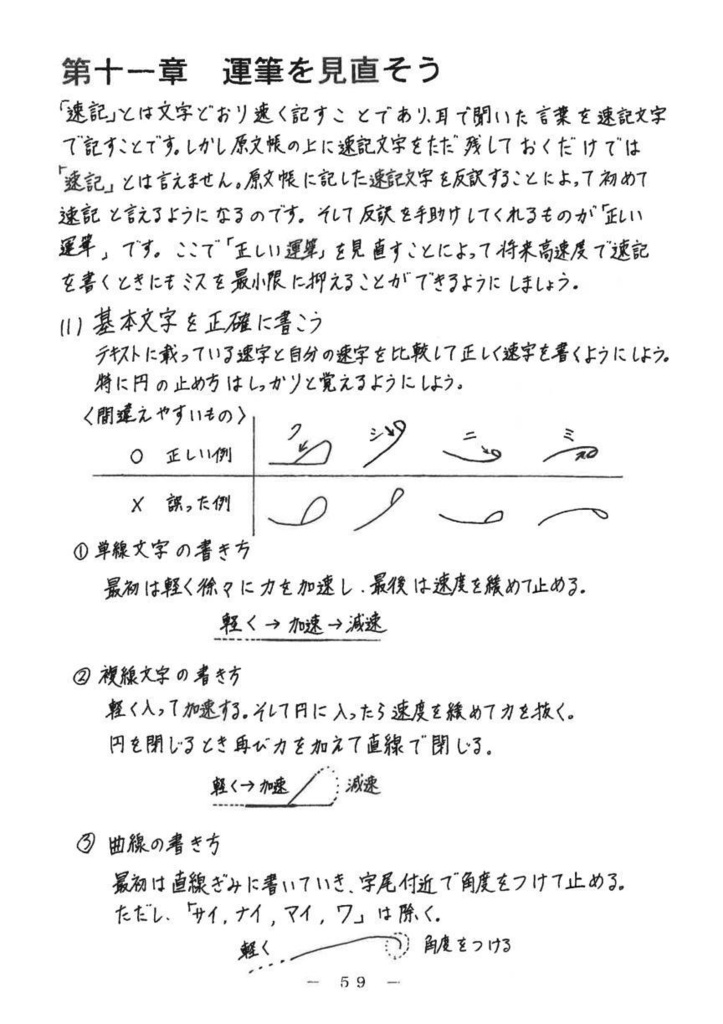 第十一章　運筆を見直そう
「速記」とは文字どおり速く記すことであり、耳で聞いた言葉を速記文字
で記すことです。しかし原文帳の上に速記文字をただ残しておくだけでは
「速記」とは言えません。原文帳に記した速記文字を反訳することによって初めて
速記と言えるようになるのです。そして反訳を手助けしてくれるものが「正しい
運筆」です。ここで「正しい運筆」を見直すことによって将来高速度で速記
を書くときにもミスを最小限に抑えることができるようにしましょう。
(1) 基本文字を正確に書こう
テキストに載っている速字と自分の速字を比較して正しく速字を書くようにしよう。
特に円の止め方はしっかりと覚えるようにしよう。
〈間違えやすいもの〉
○ 正しい例 ク シ ニ ミ
× 誤った例
①単線文字の書き方
最初は軽く徐々に力を加速し、最後は速度を緩めて止める。
軽く→加速→減速
②複線文字の書き方
軽く入って加速する。そして円に入ったら速度を緩めて力を抜く。
円を閉じるとき再び力を加えて直線で閉じる。
軽く→加速 減速
③曲線の書き方
最初は直線ぎみに書いていき、字尾付近で角度をつけて止める。
ただし、「サイ, ナイ, マイ, ワ」は除く。
軽く 角度をつける
― 59 ―